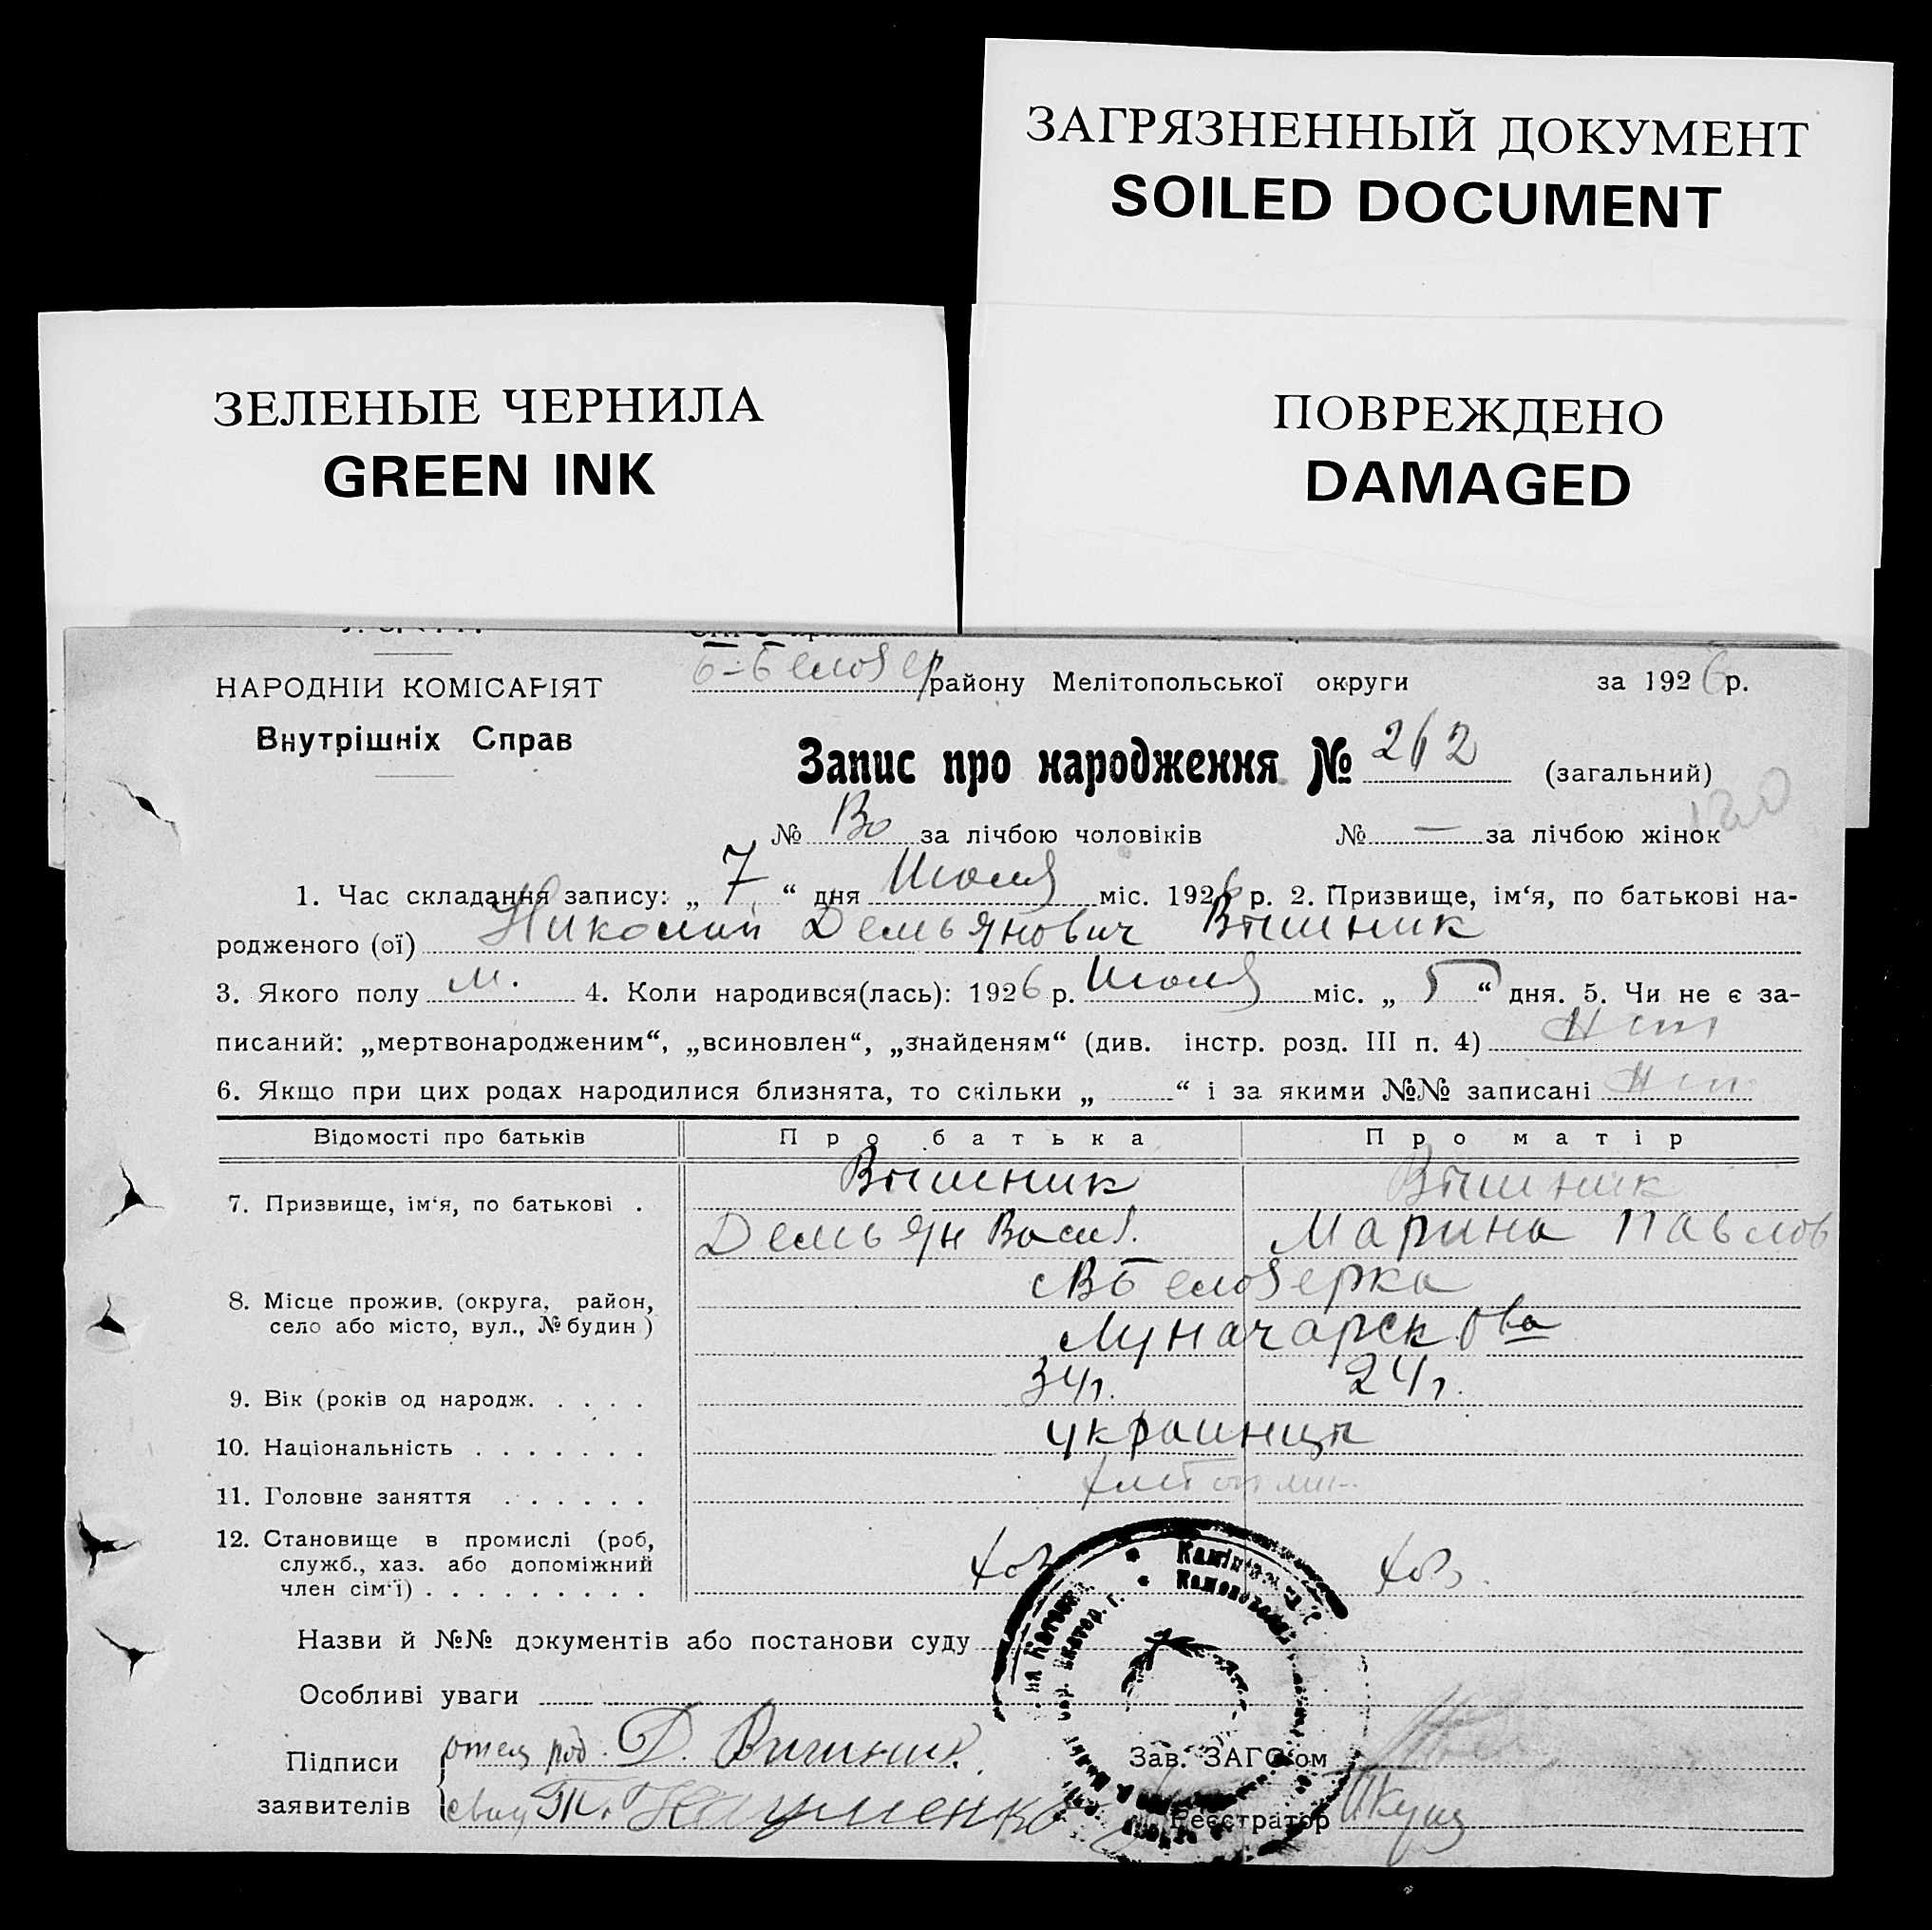 ЗАГРЯЗНЕННЫЙ ДОКУМЕНТ
SOILED DOCUMENT
ЗЕЛЕНЫЕ ЧЕРНИЛА
GREEN INK
ПОВРЕЖДЕНО
DAMAGED
НАРОДНІЙ КОМІСАРІЯТ
Внутрішніх Справ
Б-Белозер району Мелітопольської округи за 1926 р.
Запис про народження № 262 (загальний)
120
№ за лічбою чоловіків № — за лічбою жінок
1. Час складання запису: „ 7 “ дня Июля міс. 1926 р. 2. Призвище, ім‘я, по батькові на-
родженого (ої) Николай Демьянович Вишник
3. Якого полу м. 4. Коли народився(лась): 1926 р. Июля міс. „ 5 “ дня. 5. Чи не є за-
писаний: „мертвонародженим“, „всиновлен“, „знайденям“ (див. інстр. розд. III п. 4) Нет
6. Якщо при цих родах народилися близнята, то скільки „ “ і за якими №№ записані Нет
Відомості про батьків Про батька Про матір
7. Призвище, ім‘я, по батькові . Вишник Вишник
Демьян Васил. Марина Павлов
8. Місце прожив. (округа, район, село або місто, вул., № будин) Белозерка
Луначарскова
9. Вік (років од народж. . . . . 34 г. 24 г.
10. Національність . . . . . . . украинцы
11. Головне заняття . . . . . .
12. Становище в промислі (роб, служб., хаз. або допоміжний член сім‘ї) . . . . . . . . . хоз хоз.
Назви й №№ документів або постанови суду
Особливі уваги
Підписи отец род. Д. Вишник Зав. ЗАГС‘ом
заявителів Т. Науменко Реєстратор